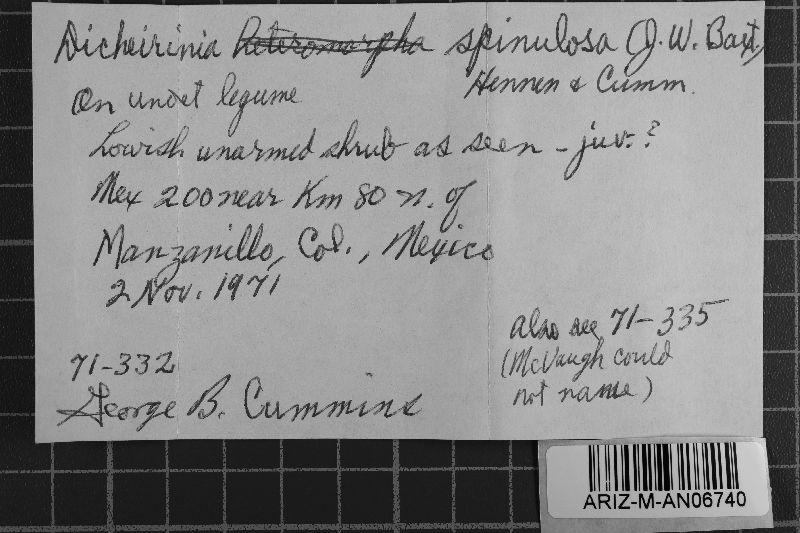 Dicheirinia heteromorpha spinulosa (J.W. Baxt.)
Hennen & Cumm.
On undet legume
Lowish unarmed shrub as seen - juv.?
Mex 200 near Km 80 n. of
Manzanillo, Col., Mexico
2 Nov. 1971
also see 71-335
(McVaugh could
not name)
71-332
George B. Cummins
ARIZ-M-AN06740